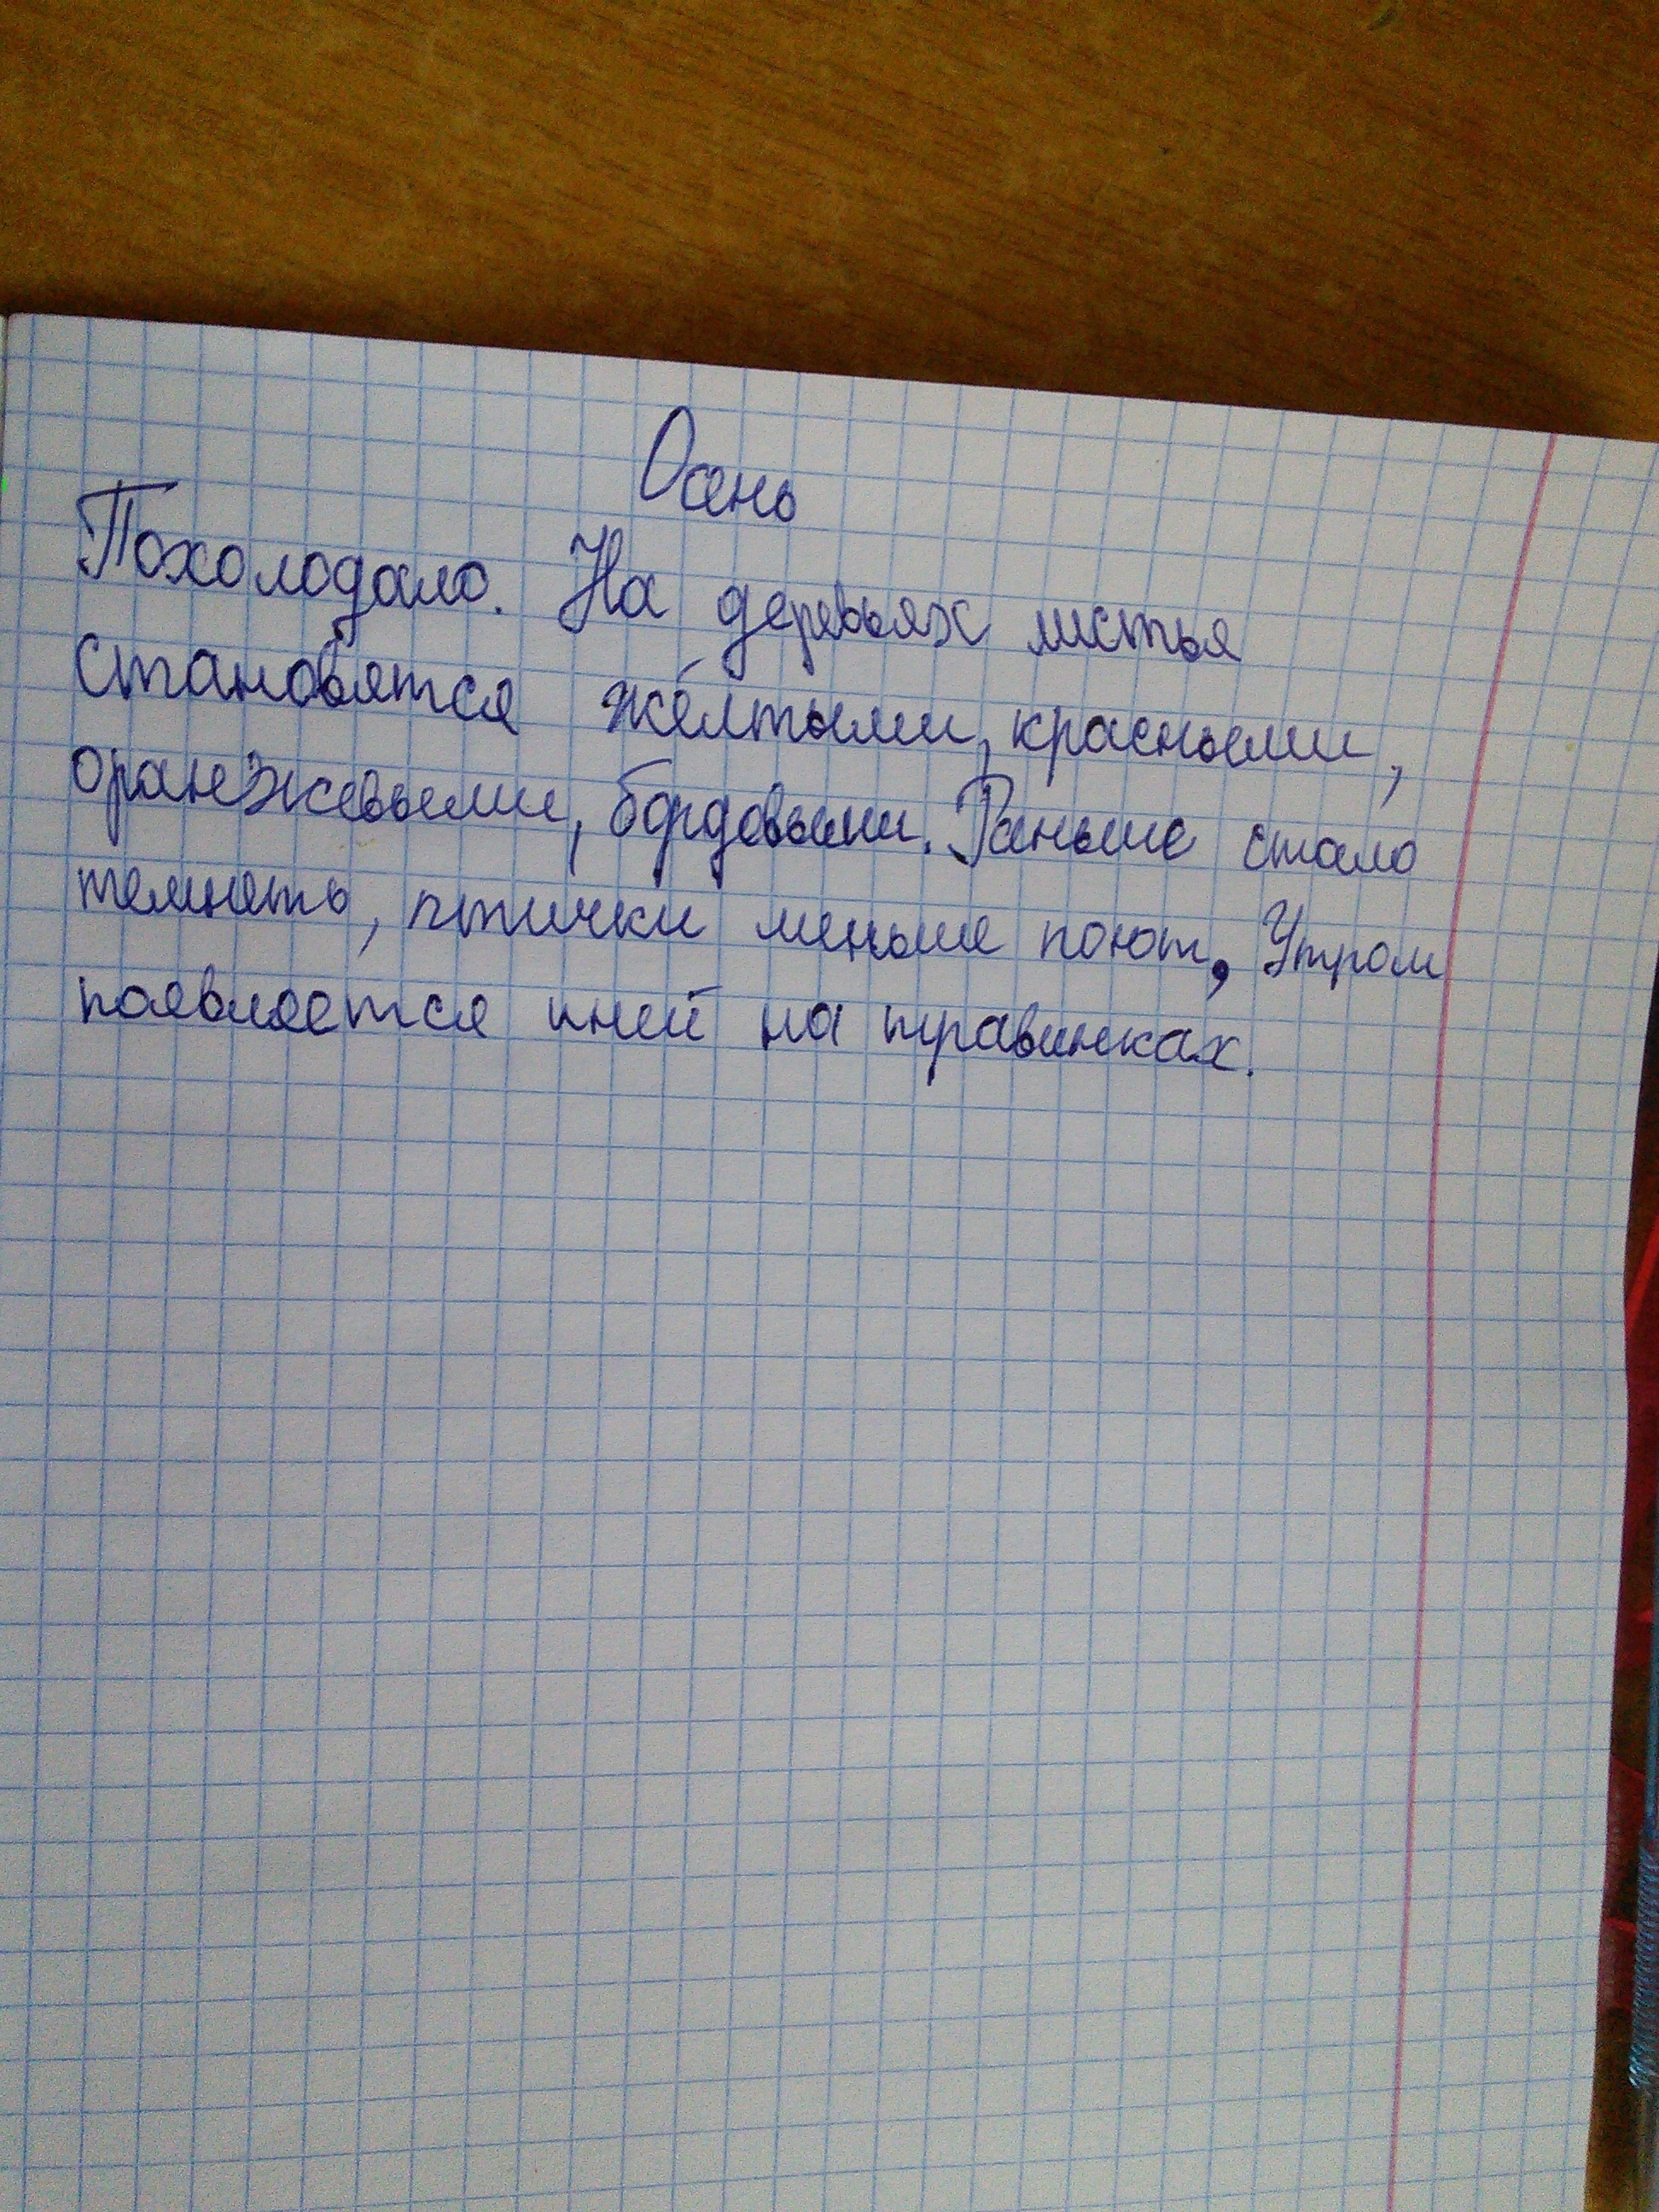 Осень
Похолодало. На деревьях листья
становятся жёлтыми, красными,
оранжевыми, бордовыми. Раньше стало
темнеть, птички меньше поют, Утром
появляется иней на травинках.